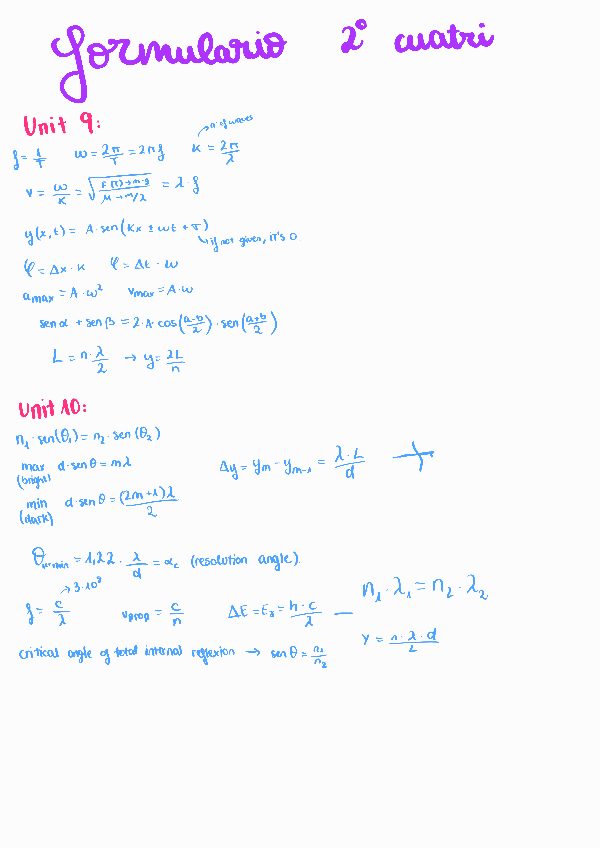 formulario 2º cuatri
Unit 9:
f = 1/T   ω = 2π/T = 2πf   K = 2π/λ → nº of waves
v = ω/K = √(F(T)→m·g / μ→m/λ) = λ·f
y(x,t) = A·sen(Kx ± ωt + τ)
↳ if not given, it's 0
φ = Δx·K   φ = Δt·ω
a max = A·ω²   v max = A·ω
sen α + sen β = 2·A·cos((a-b)/2)·sen((a+b)/2)
L = n·λ/2 → y = 2L/n
Unit 10:
n₁·sen(θ₁) = n₂·sen(θ₂)
max (bright) d·sen θ = mλ   Δy = yₘ - yₘ₋₁ = λ·L/d
min (dark) d·sen θ = (2m+1)λ/2
θ min = 1,22·λ/d = αc (resolution angle).
f = c/λ → 3·10⁸   v prop = c/n   ΔE = Eγ = h·c/λ   n₁·λ₁ = n₂·λ₂
critical angle of total internal reflexion → sen θ = n₁/n₂   Y = n·λ·d/L